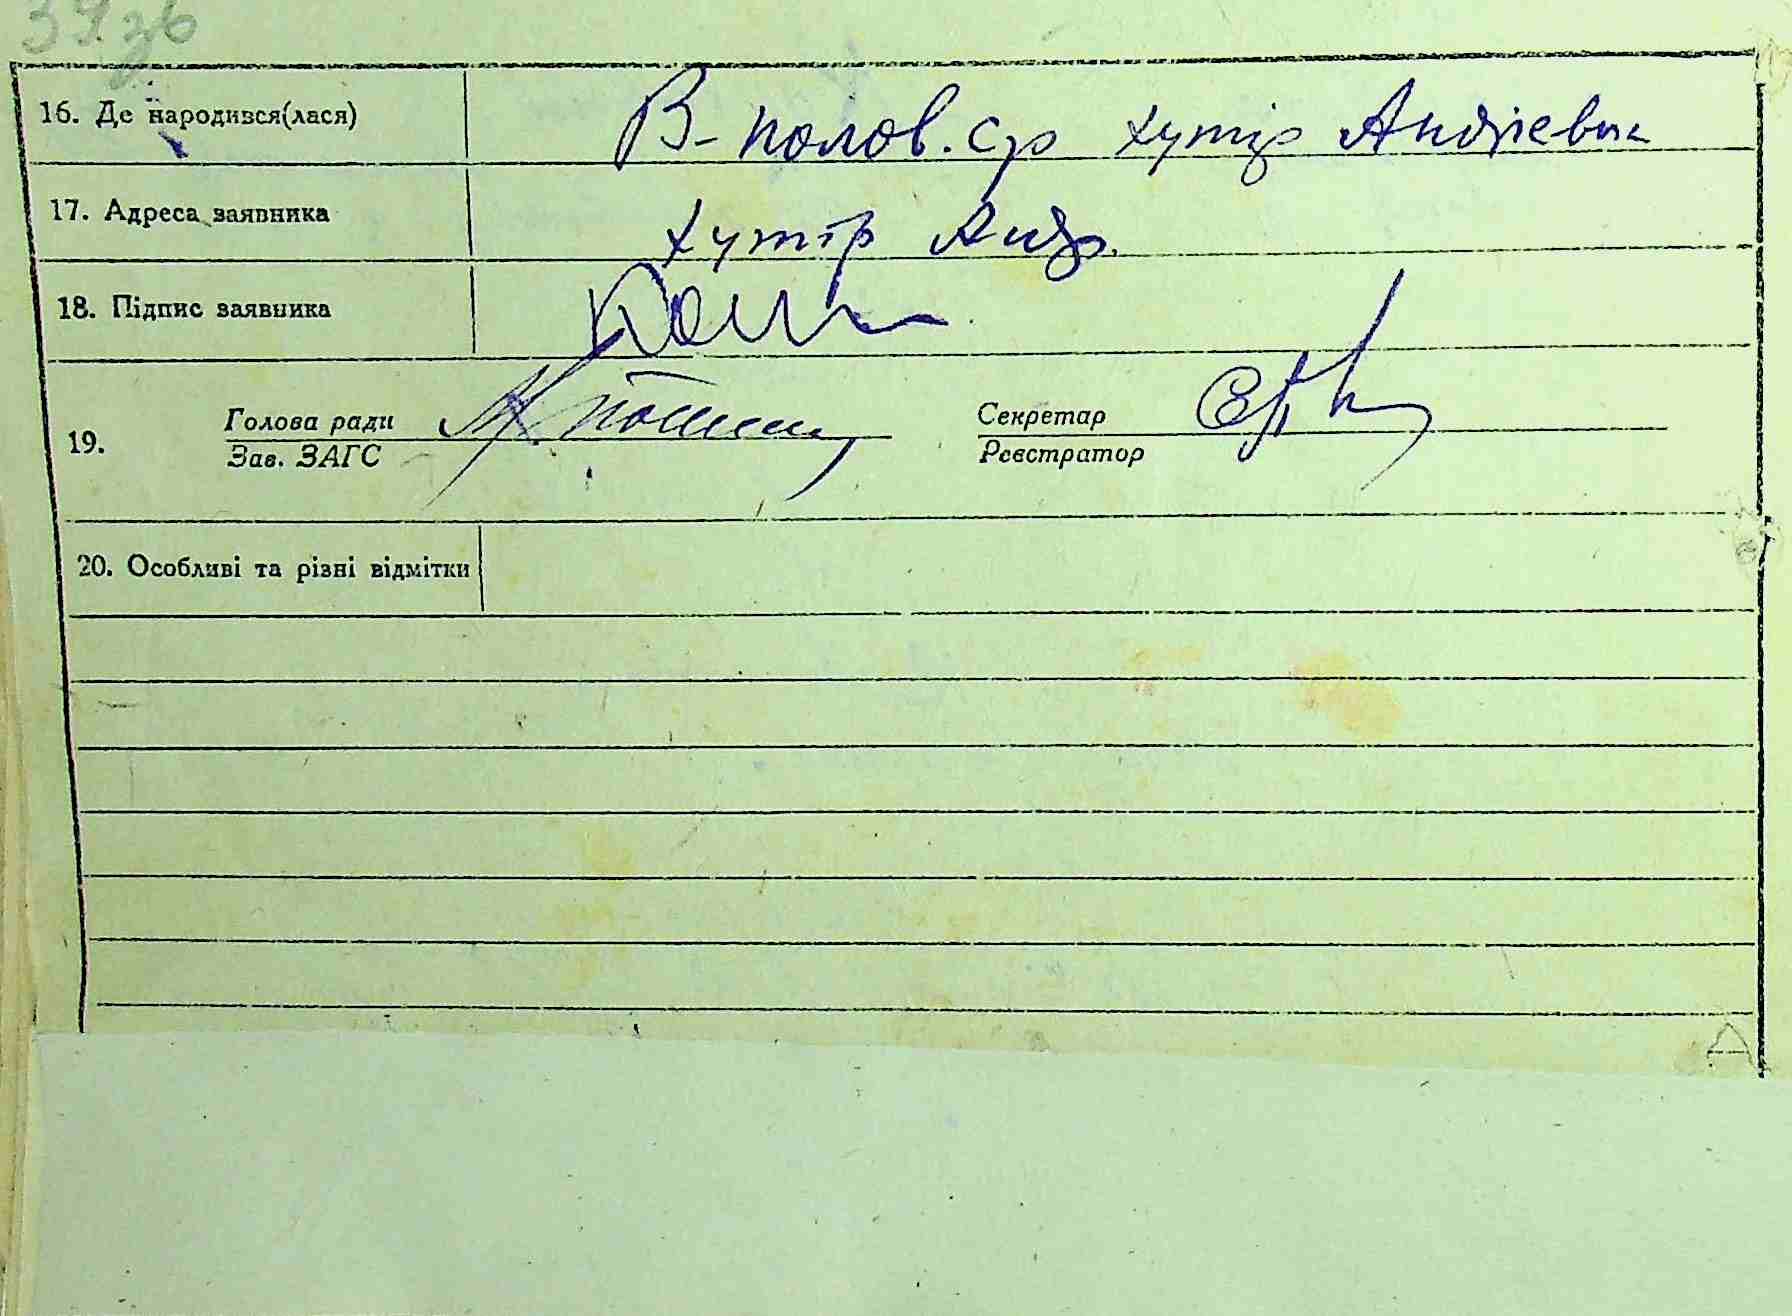 39зв
16. Де народився(лася) В-полов. с/р хутір Андрієвка
17. Адреса заявника хутір Андр.
18. Підпис заявника
19. Голова ради Секретар
Зав. ЗАГС Реєстратор
20. Особливі та різні відмітки